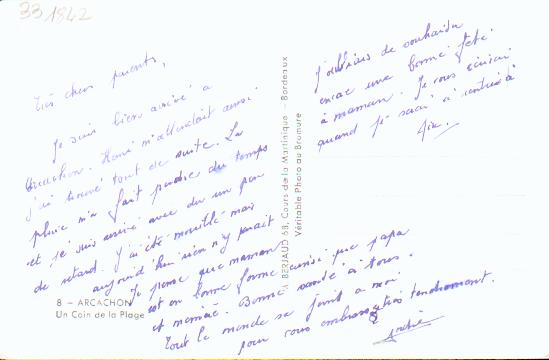 33 1842
Très chers parents,
Je suis bien arrivé à
Arcachon. m'attendait ainsi
j'ai trouvé tout de suite. La
pluie m'a fait perdre du temps
et je suis arrivé avec du un peu
de retard. J'ai été mouillé mais
aujourd'hui rien n'y paraît
Je pense que maman
est en bonne forme aussi que papa
et mémée. Bonne santé à tous.
Tout le monde se joint à moi
pour vous embrasser tendrement.
André
J'oubliais de souhaiter
encore une bonne fête
à maman. Je vous écrirai
quand je serai rentré à
Aix.
M. BERJAUD 68, Cours de la Martinique - Bordeaux
Véritable Photo au Bromure
8 — ARCACHON
Un Coin de la Plage